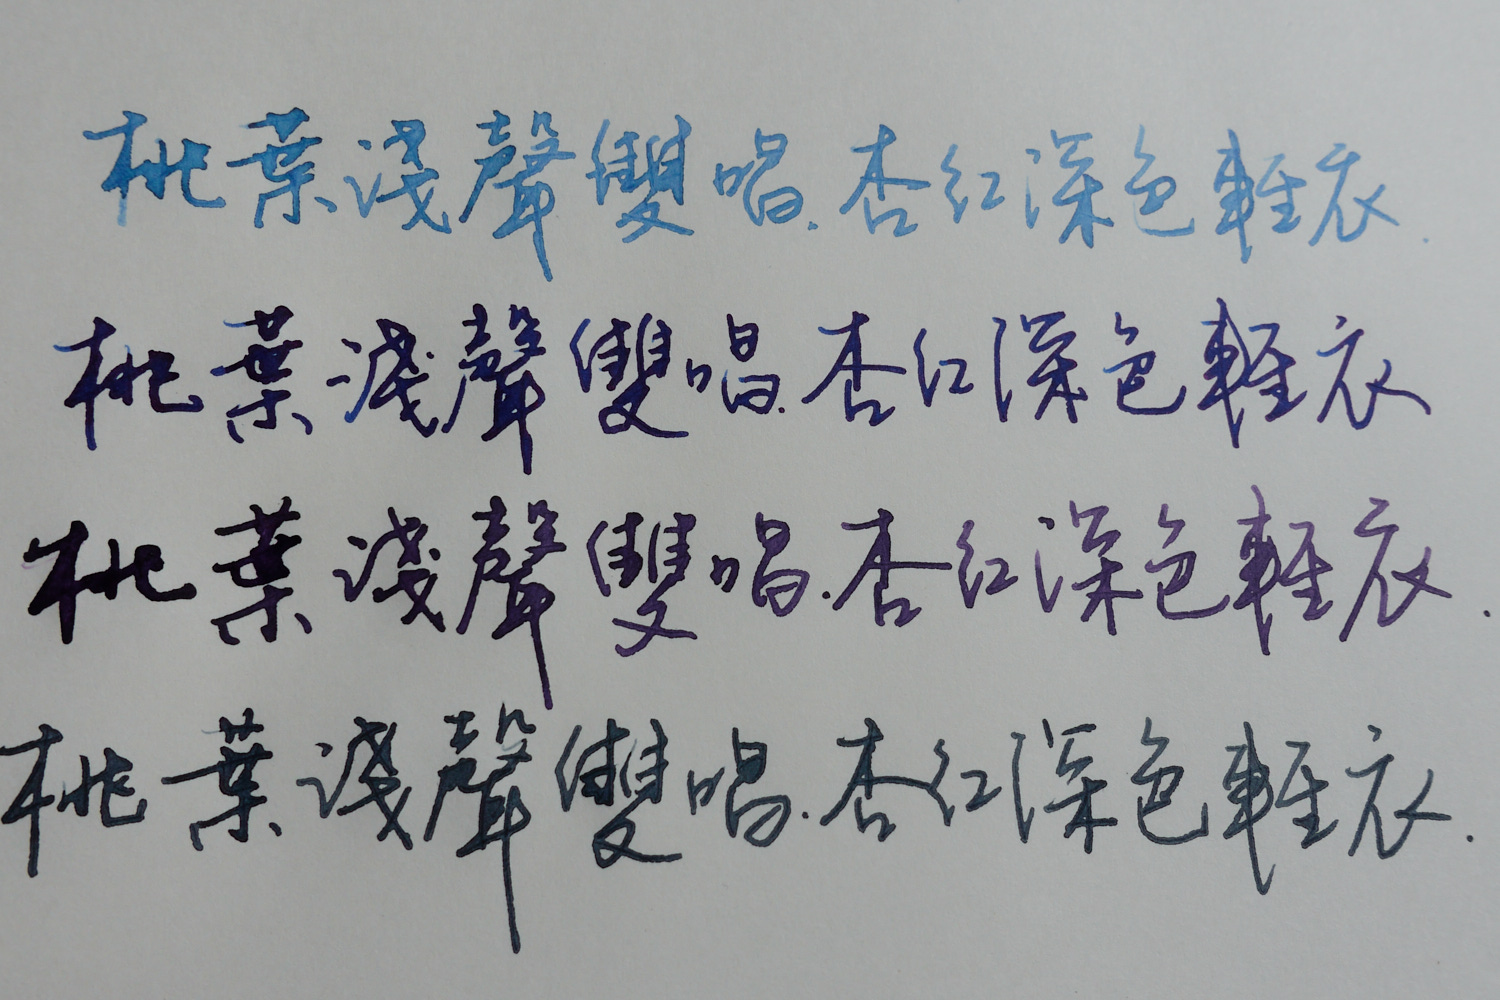 桃葉淺聲雙唱.杏紅深色輕衣.
桃葉淺聲雙唱.杏紅深色輕衣
桃葉淺聲雙唱.杏紅深色輕衣.
桃葉淺聲雙唱.杏紅深色輕衣.